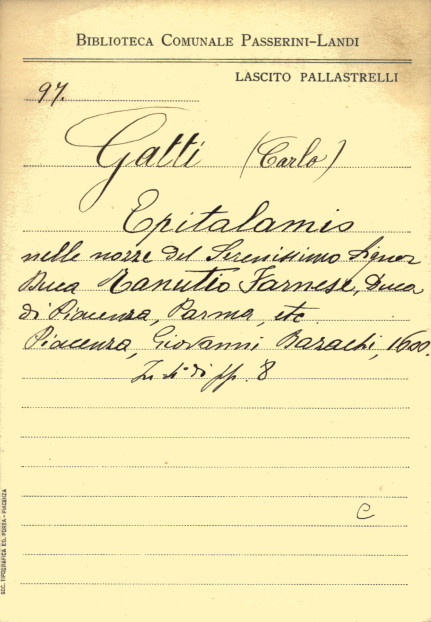 BIBLIOTECA COMUNALE PASSERINI-LANDI
LASCITO PALLASTRELLI
97.
Gatti (Carlo)
Epitalamio
nelle nozze del Serenissimo Signor
Duca Ranutio Farnese, Duca
di Piacenza, Parma, etc.
Piacenza, Giovanni Bazachi, 1600.
In 4° di pp. 8
C
SOC. TIPOGRAFICA ED. PORTA - PIACENZA